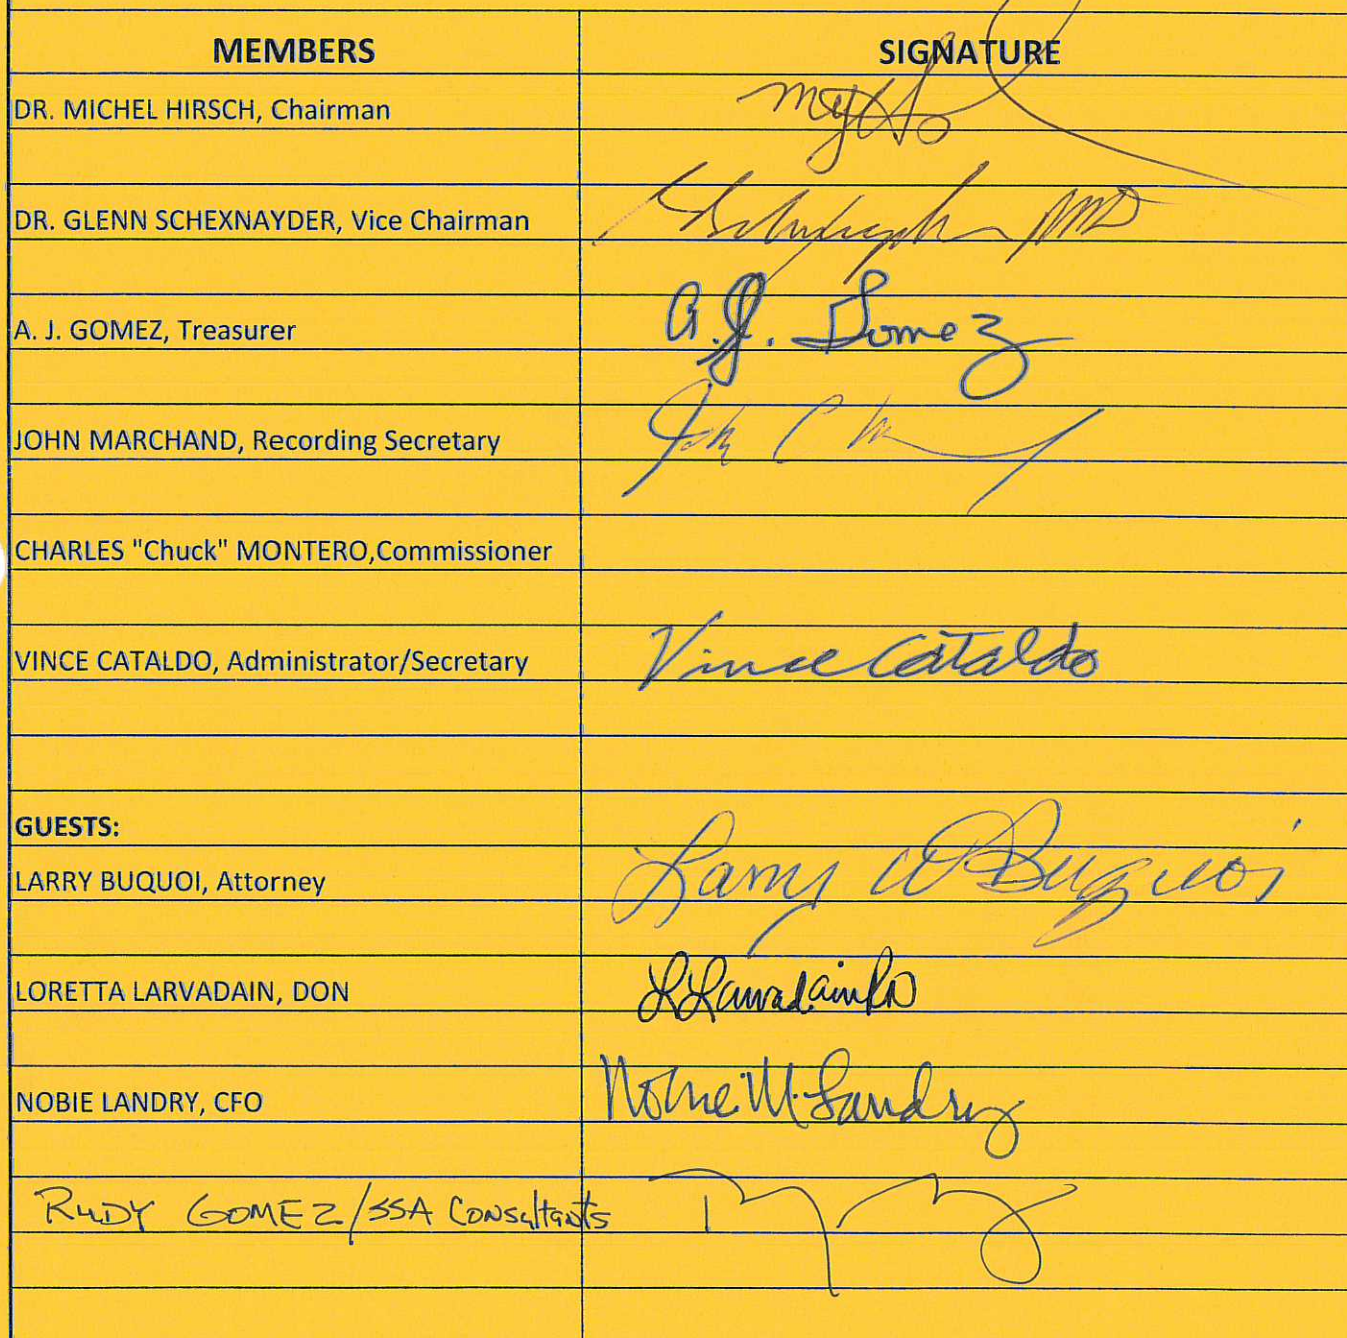 MEMBERS SIGNATURE
DR. MICHEL HIRSCH, Chairman
DR. GLENN SCHEXNAYDER, Vice Chairman MD
A. J. GOMEZ, Treasurer A. J. Gomez
JOHN MARCHAND, Recording Secretary John C
CHARLES "Chuck" MONTERO,Commissioner
VINCE CATALDO, Administrator/Secretary Vince Cataldo
GUESTS:
LARRY BUQUOI, Attorney Larry W Buquoi
LORETTA LARVADAIN, DON L Larvadain RN
NOBIE LANDRY, CFO Nobie M. Landry
RUDY GOMEZ/SSA CONSultants